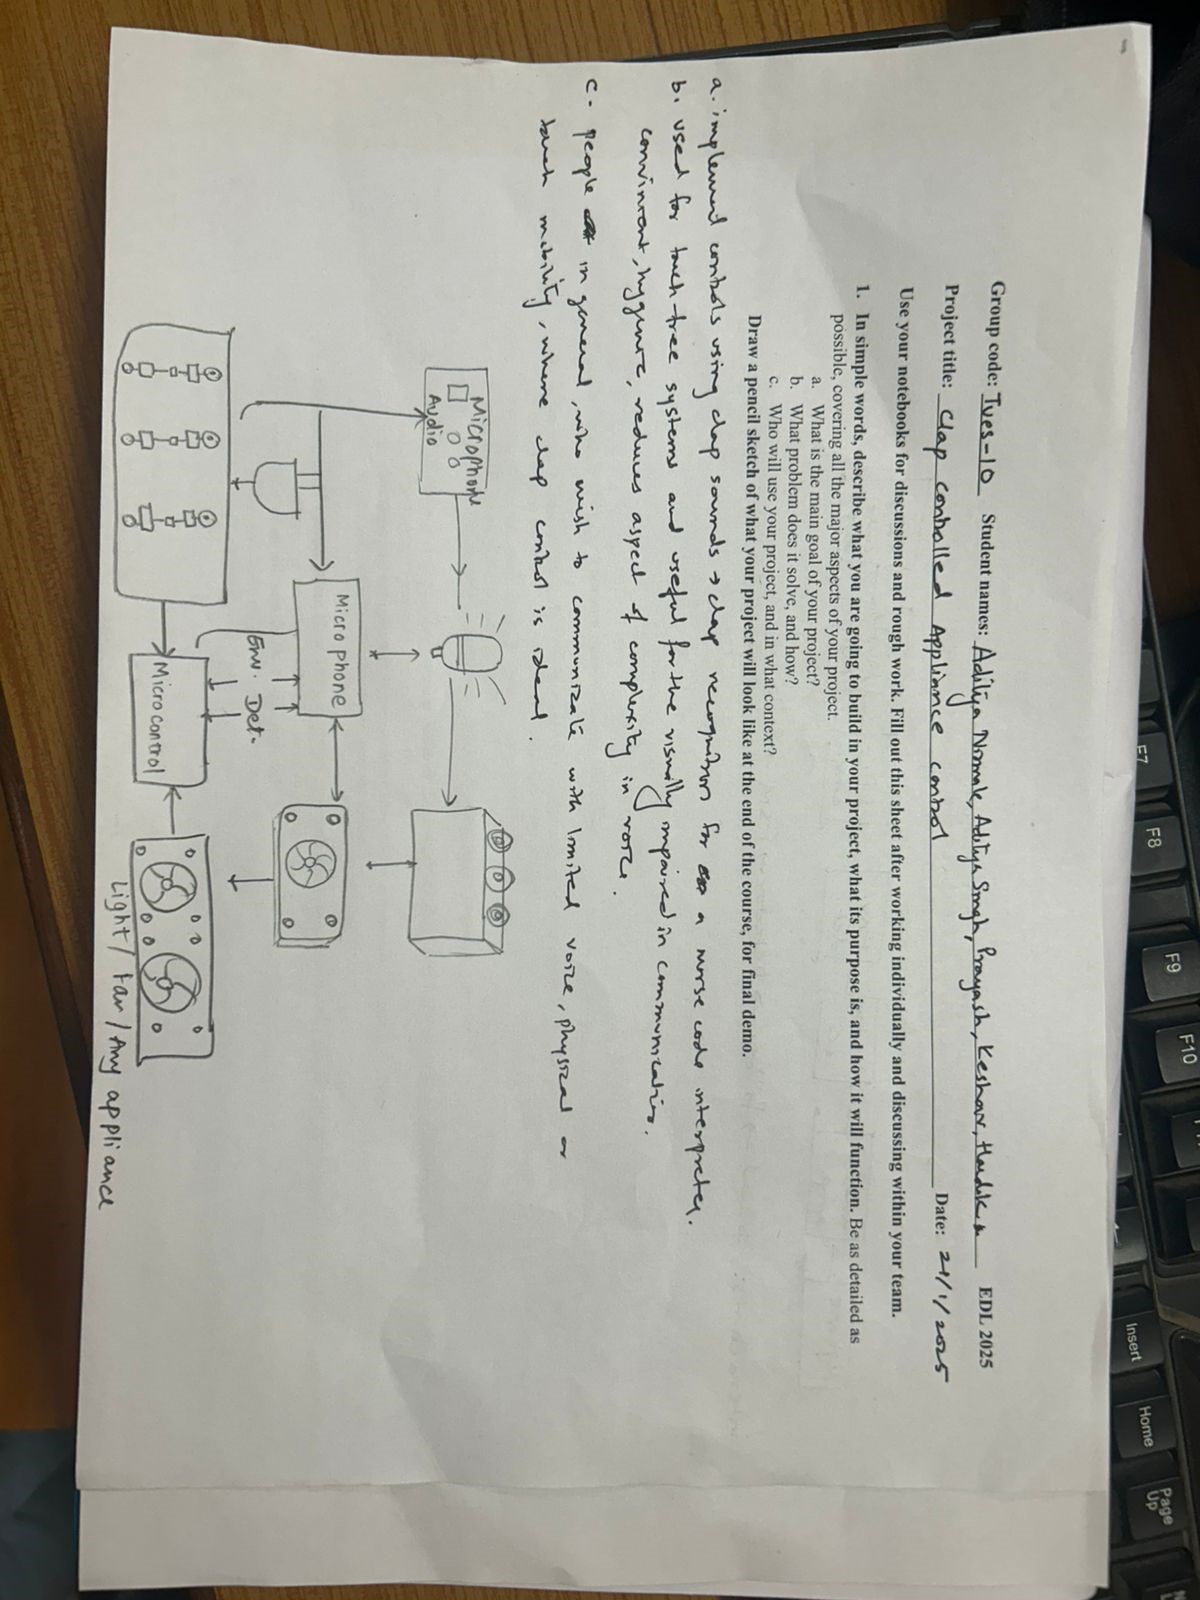 Group code: Tues-10 Student names: Aditya Nirmale, Aditya Singh, Prayash, Keshav, Hardik EDL 2025
Project title: Clap controlled Appliance control Date: 21/1/2025
Use your notebooks for discussions and rough work. Fill out this sheet after working individually and discussing within your team.
1. In simple words, describe what you are going to build in your project, what its purpose is, and how it will function. Be as detailed as
possible, covering all the major aspects of your project.
a. What is the main goal of your project?
b. What problem does it solve, and how?
c. Who will use your project, and in what context?
Draw a pencil sketch of what your project will look like at the end of the course, for final demo.
a. implement controls using clap sounds → clap recognition for a morse code interpreter.
b. used for touch-free systems and useful for the visually impaired in communication.
convinient, hygenic, reduces aspect of complexity in voice.
c. people in general, who wish to communicate with limited voice, physical or
touch mobility, where clap control is ideal.
Microphone
Audio
Micro phone
Env. Det.
Micro control
Light / Fan / Any appliance
F7
F8
F9
F10
Insert
Home
Page
Up